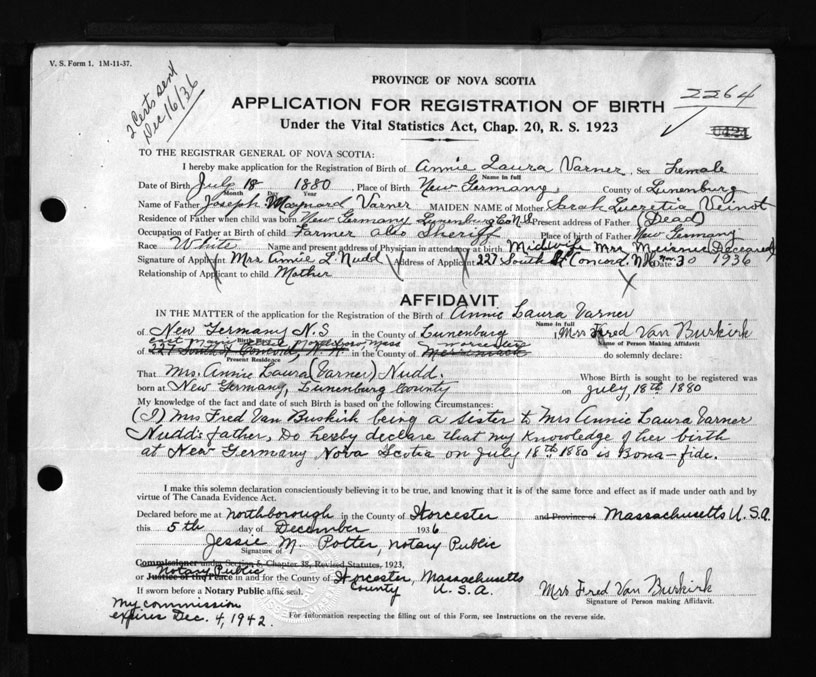 V. S. Form 1. 1M-11-37.
2 Certs sent
Dec 16/36
PROVINCE OF NOVA SCOTIA
APPLICATION FOR REGISTRATION OF BIRTH
2264
Under the Vital Statistics Act, Chap. 20, R. S. 1923
TO THE REGISTRAR GENERAL OF NOVA SCOTIA:
I hereby make application for the Registration of Birth of Annie Laura Varner, Sex Female
Name in full
Date of Birth July 18 1880, Place of Birth New Germany, County of Lunenburg
Month Day Year
Name of Father Joseph Maynard Varner MAIDEN NAME of Mother Sarah Lucretia Veinot
Residence of Father when child was born New Germany Lunenburg Co N.S. Present address of Father (Dead)
Occupation of Father at Birth of child Farmer also Sheriff Place of birth of Father New Germany
Race White Name and present address of Physician in attendance at birth Midwife Mrs (Deceased)
Signature of Applicant Mrs Annie L. Nudd Address of Applicant 227 South St Concord N.H. Date Nov 30 1936
Relationship of Applicant to child Mother
AFFIDAVIT
IN THE MATTER of the application for the Registration of the Birth of Annie Laura Varner
Name in full
of New Germany N.S in the County of Lunenburg I, Mrs Fred Van Buskirk
Birth Place
Name of Person Making Affidavit
of 227 South St Concord, N.H. in the County of Merrimack do solemnly declare:
Mass Worcester
Present Residence
That Mrs. Annie Laura (Varner) Nudd. Whose Birth is sought to be registered was
born at New Germany, Lunenburg County on July, 18th 1880
My knowledge of the fact and date of such Birth is based on the following Circumstances:
(I) Mrs Fred Van Buskirk being a sister to Mrs Annie Laura Varner
Nudd's father, Do hereby declare that my knowledge of her birth
at New Germany Nova Scotia on July 18th 1880 is Bona-fide.
I make this solemn declaration conscientiously believing it to be true, and knowing that it is of the same force and effect as if made under oath and by
virtue of The Canada Evidence Act.
Declared before me at Northborough in the County of Worcester and Province of Massachusetts U.S.A.
this 5th day of December 1936
Jessie M. Potter, Notary Public
Signature of
Commissioner under Section 6, Chapter 38, Revised Statutes, 1923,
Notary Public
or Justice of the Peace in and for the County of Worcester, Massachusetts
County U.S.A.
If sworn before a Notary Public affix seal.
Mrs Fred Van Buskirk
Signature of Person making Affidavit.
My commission
expires Dec. 4, 1942.
For information respecting the filling out of this Form, see Instructions on the reverse side.